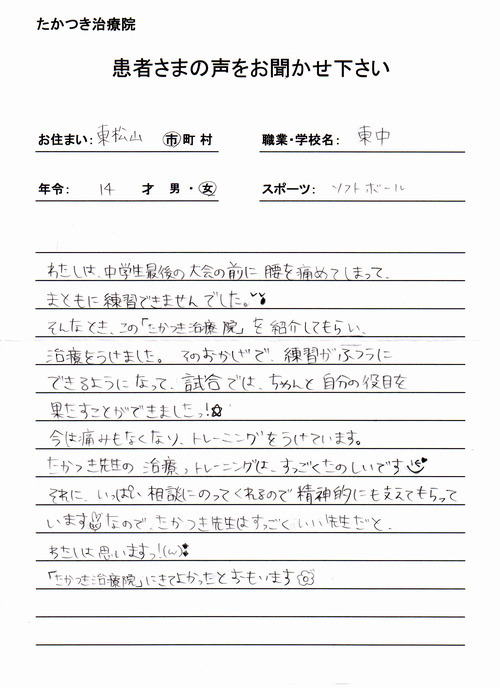 たかつき治療院
患者さまの声をお聞かせ下さい
お住まい: 東松山 市 町 村 職業・学校名: 東中
年令: 14 才 男・女 スポーツ: ソフトボール
わたしは、中学生最後の大会の前に腰を痛めてしまって、
まともに練習できませんでした。
そんなとき、この「たかつき治療院」を紹介してもらい、
治療をうけました。そのおかげで、練習がふつうに
できるようになって、試合では、ちゃんと自分の役目を
果たすことができましたっ!☆
今は痛みもなくなり、トレーニングをうけています。
たかつき先生の治療、トレーニングは、すっごくたのしいです
それに、いっぱい相談にのってくれるので精神的にも支えてもらって
います なので、たかつき先生はすっごくいい先生だと、
わたしは思いますっ!(ω)
「たかつき治療院」にきてよかったとおもいます